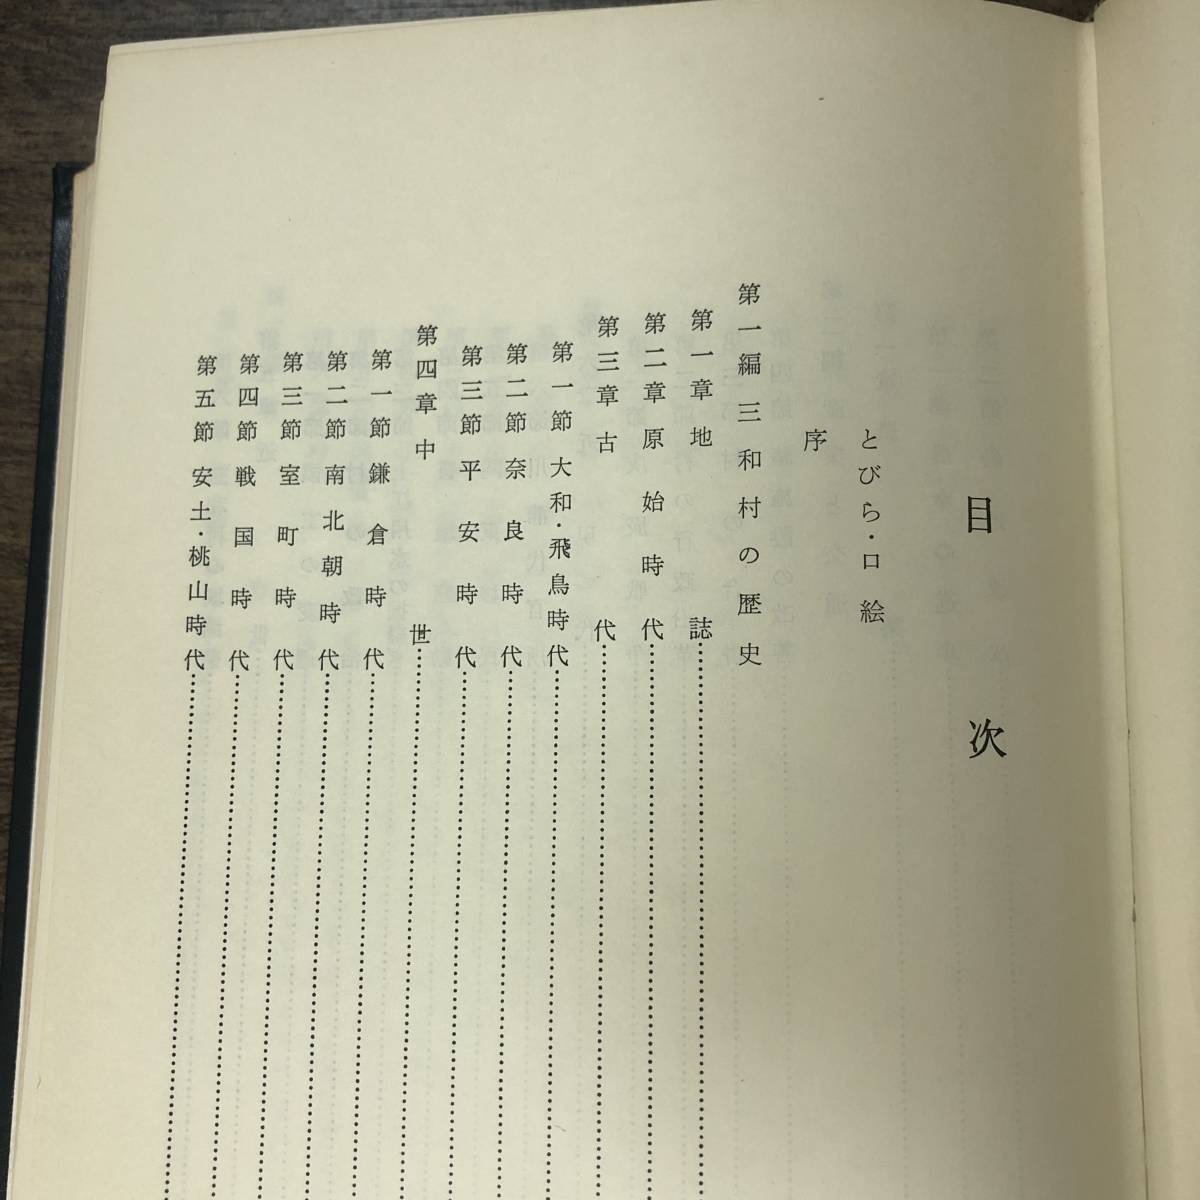 目次
とびら・口絵
序
第一編 三和村の歴史
第一章 地誌
第二章 原始時代
第三章 古代
第一節 大和・飛鳥時代
第二節 奈良時代
第三節 平安時代
第四章 中世
第一節 鎌倉時代
第二節 南北朝時代
第三節 室町時代
第四節 戦国時代
第五節 安土・桃山時代